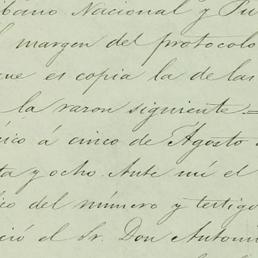 bano Nacional y Pu
l margen del protocolo
que es copia la de las
la razon siguiente
xico á cinco de Agosto
ta y ocho. Ante mi el
lico del número y testigo
ció el Sr. Don Antoni